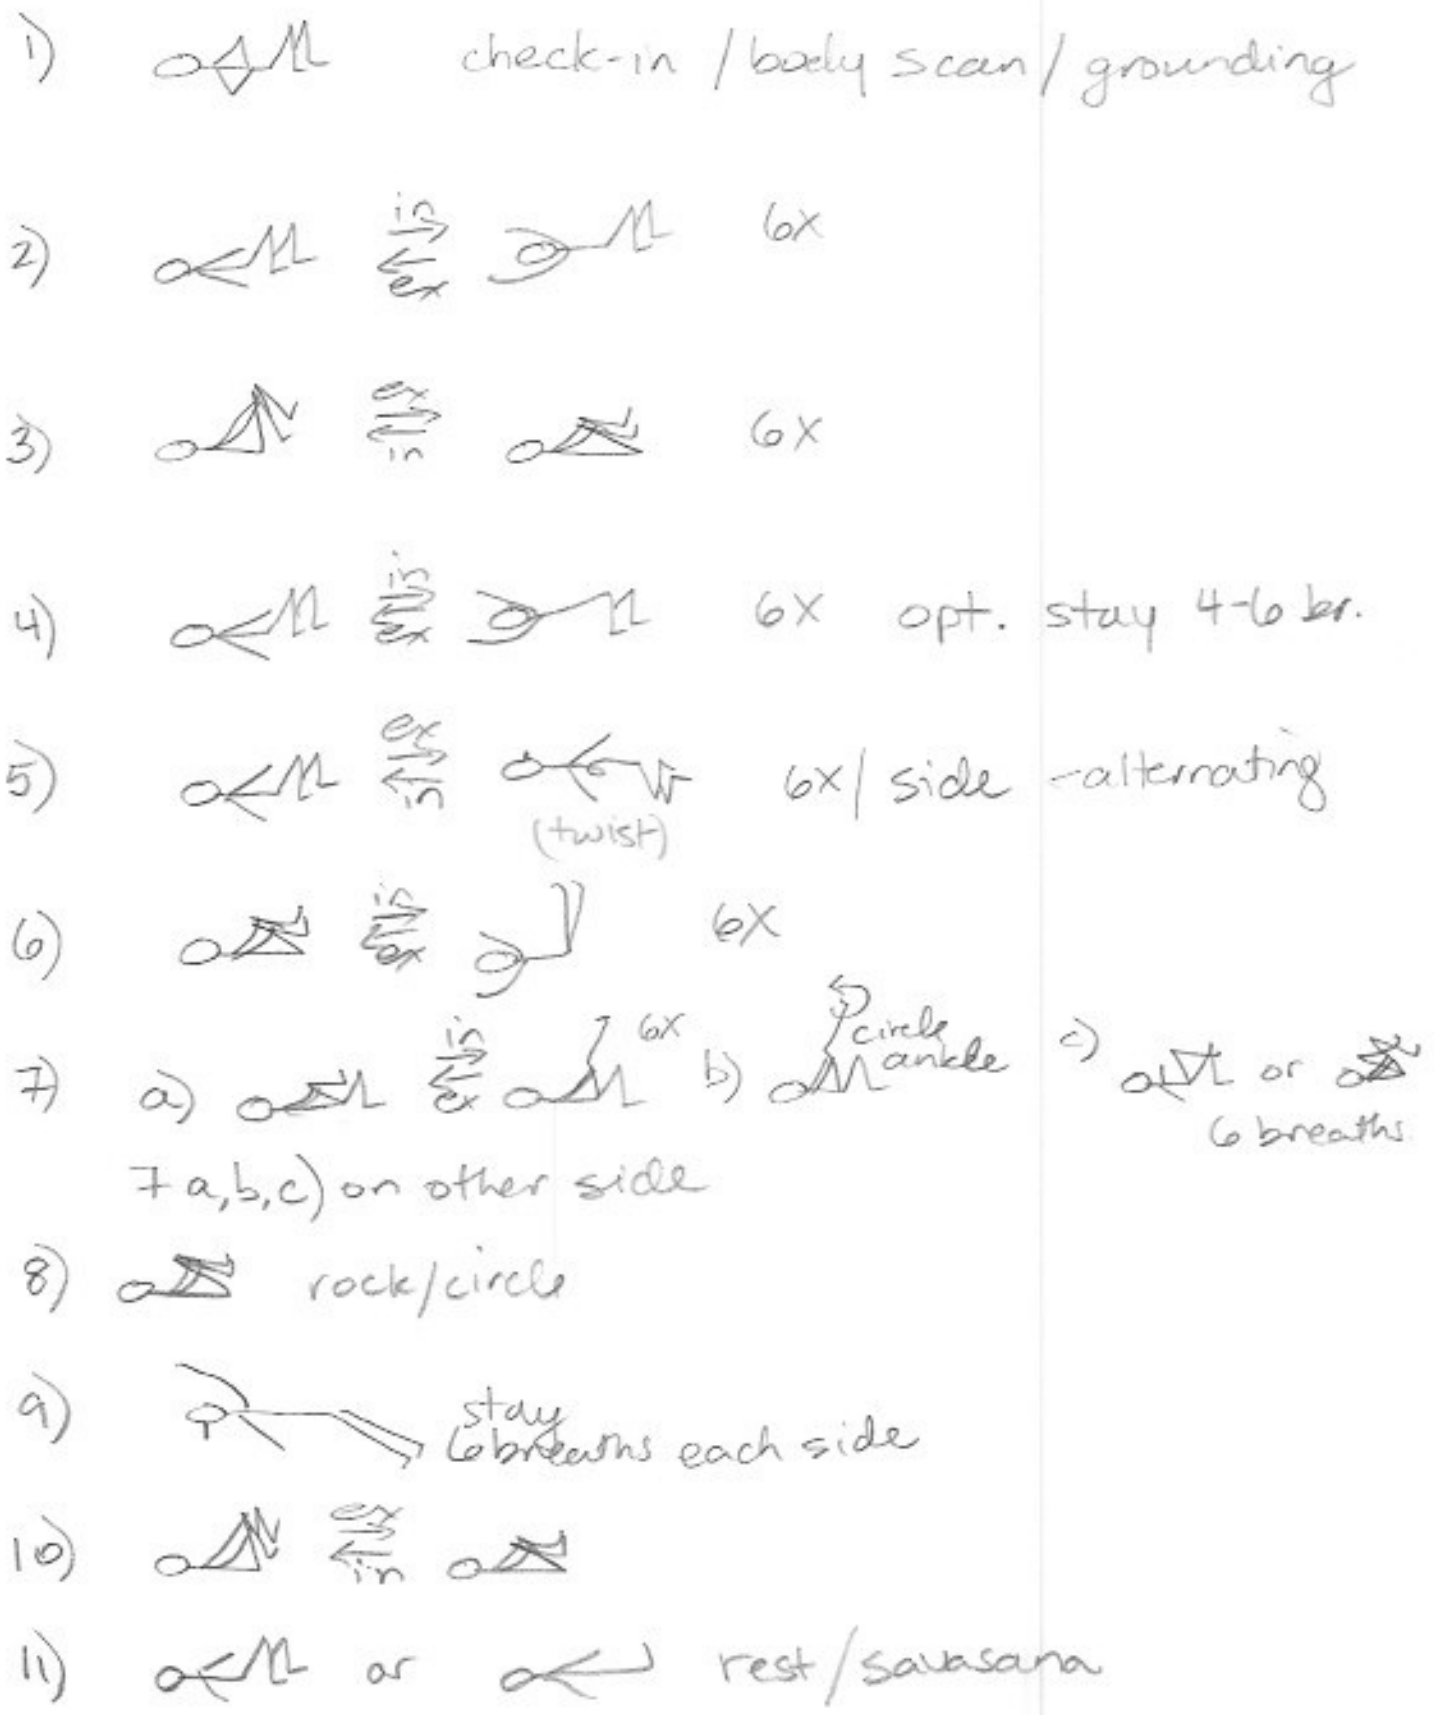 1) check-in / body scan / grounding
2) in ex 6x
3) ex in 6x
4) in ex 6x opt. stay 4-6 br.
5) ex in (twist) 6x / side - alternating
6) in ex 6x
7) a) in ex 6x b) circle ankle c) or 6 breaths
7 a, b, c) on other side
8) rock/circle
9) stay 6 breaths each side
10) ex in
11) or rest/savasana